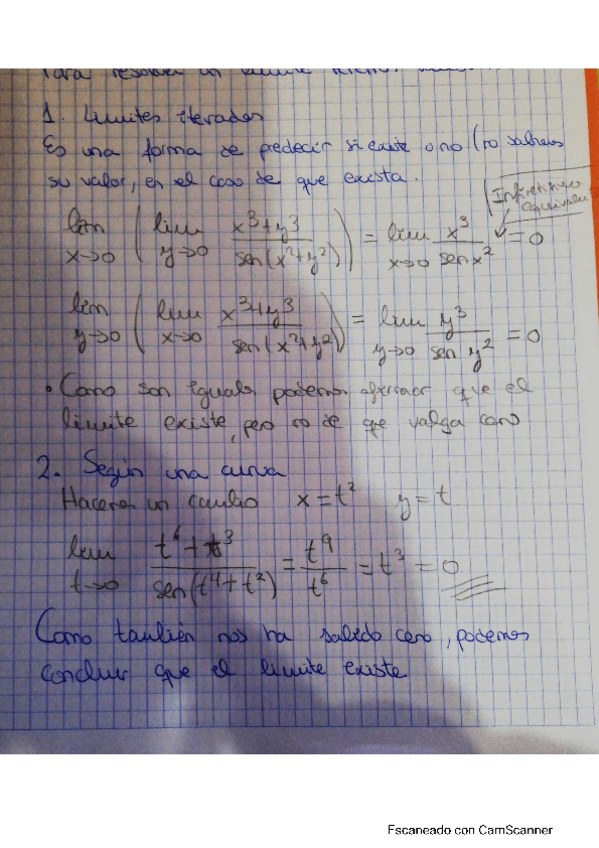 Para resolver un límite
1. Límites iterados
Es una forma de predecir si existe o no (no sabemos
su valor, en el caso de que exista.
Infinitésimo
equivalente
lim x→0 ( lim y→0 x³+y³ / sen(x²+y²) ) = lim x→0 x³ / sen x² = 0
lim y→0 ( lim x→0 x³+y³ / sen(x²+y²) ) = lim y→0 y³ / sen y² = 0
• Como son iguals podemos afirmar que el
límite existe, pero no de que valga cero
2. Según una curva
Hacemos un cambio x = t² y = t
lim t→0 t⁶ + t³ / sen(t⁴+t²) = t⁹ / t⁶ = t³ = 0
Como también nos ha salido cero, podemos
concluir que el límite existe
Escaneado con CamScanner